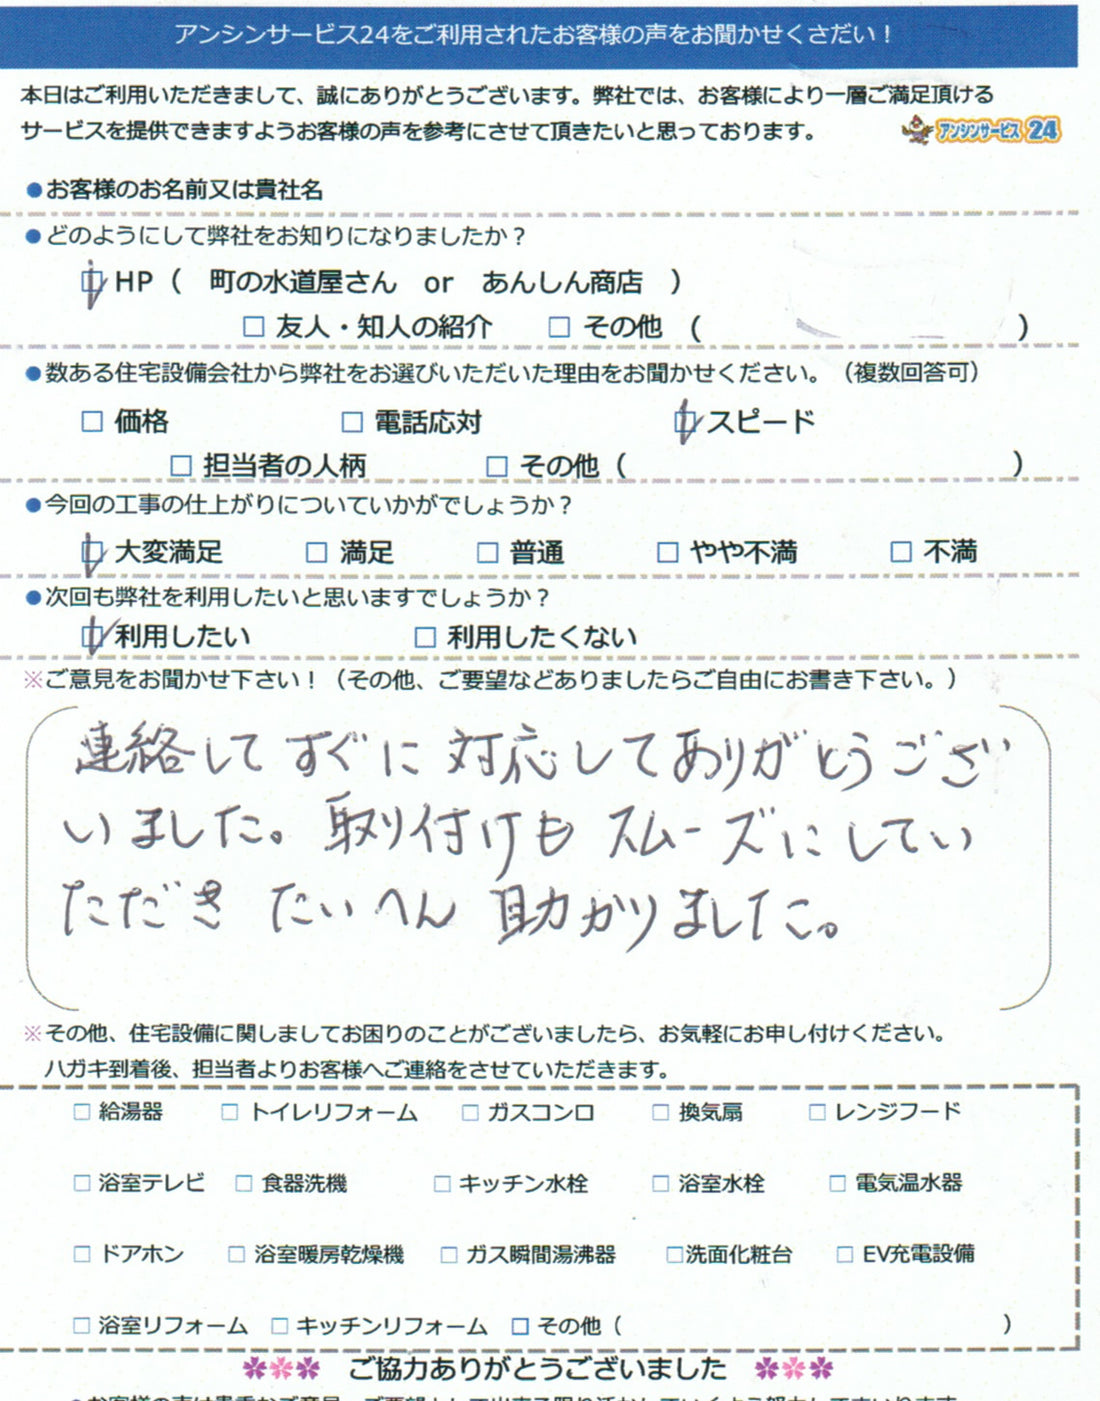 アンシンサービス24をご利用されたお客様の声をお聞かせくさだい！
本日はご利用いただきまして、誠にありがとうございます。弊社では、お客様により一層ご満足頂ける
サービスを提供できますようお客様の声を参考にさせて頂きたいと思っております。
アンシンサービス24
●お客様のお名前又は貴社名
●どのようにして弊社をお知りになりましたか？
☑ HP（ 町の水道屋さん or あんしん商店 ）
□ 友人・知人の紹介 □ その他 （ ）
●数ある住宅設備会社から弊社をお選びいただいた理由をお聞かせください。（複数回答可）
□ 価格 □ 電話応対 ☑ スピード
□ 担当者の人柄 □ その他（ ）
●今回の工事の仕上がりについていかがでしょうか？
☑ 大変満足 □ 満足 □ 普通 □ やや不満 □ 不満
●次回も弊社を利用したいと思いますでしょうか？
☑ 利用したい □ 利用したくない
※ご意見をお聞かせ下さい！（その他、ご要望などありましたらご自由にお書き下さい。）
連絡してすぐに対応してありがとうござ
いました。取り付けもスムーズにしてい
ただきたいへん助かりました。
※その他、住宅設備に関しましてお困りのことがございましたら、お気軽にお申し付けください。
ハガキ到着後、担当者よりお客様へご連絡をさせていただきます。
□ 給湯器 □ トイレリフォーム □ ガスコンロ □ 換気扇 □ レンジフード
□ 浴室テレビ □ 食器洗機 □ キッチン水栓 □ 浴室水栓 □ 電気温水器
□ ドアホン □ 浴室暖房乾燥機 □ ガス瞬間湯沸器 □洗面化粧台 □ EV充電設備
□ 浴室リフォーム □ キッチンリフォーム □ その他（ ）
ご協力ありがとうございました